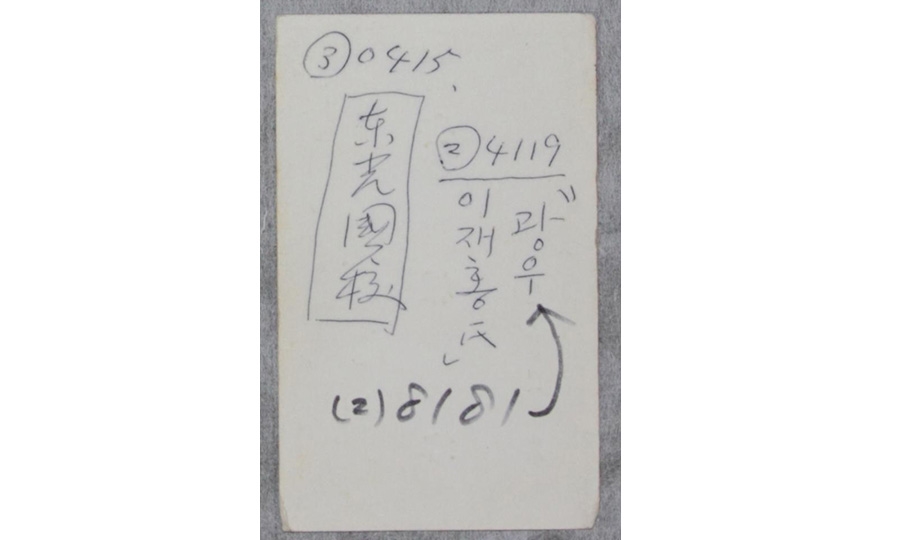 ③ 0415
东光國校
② 4119
광우
이재홍氏
(2) 8181